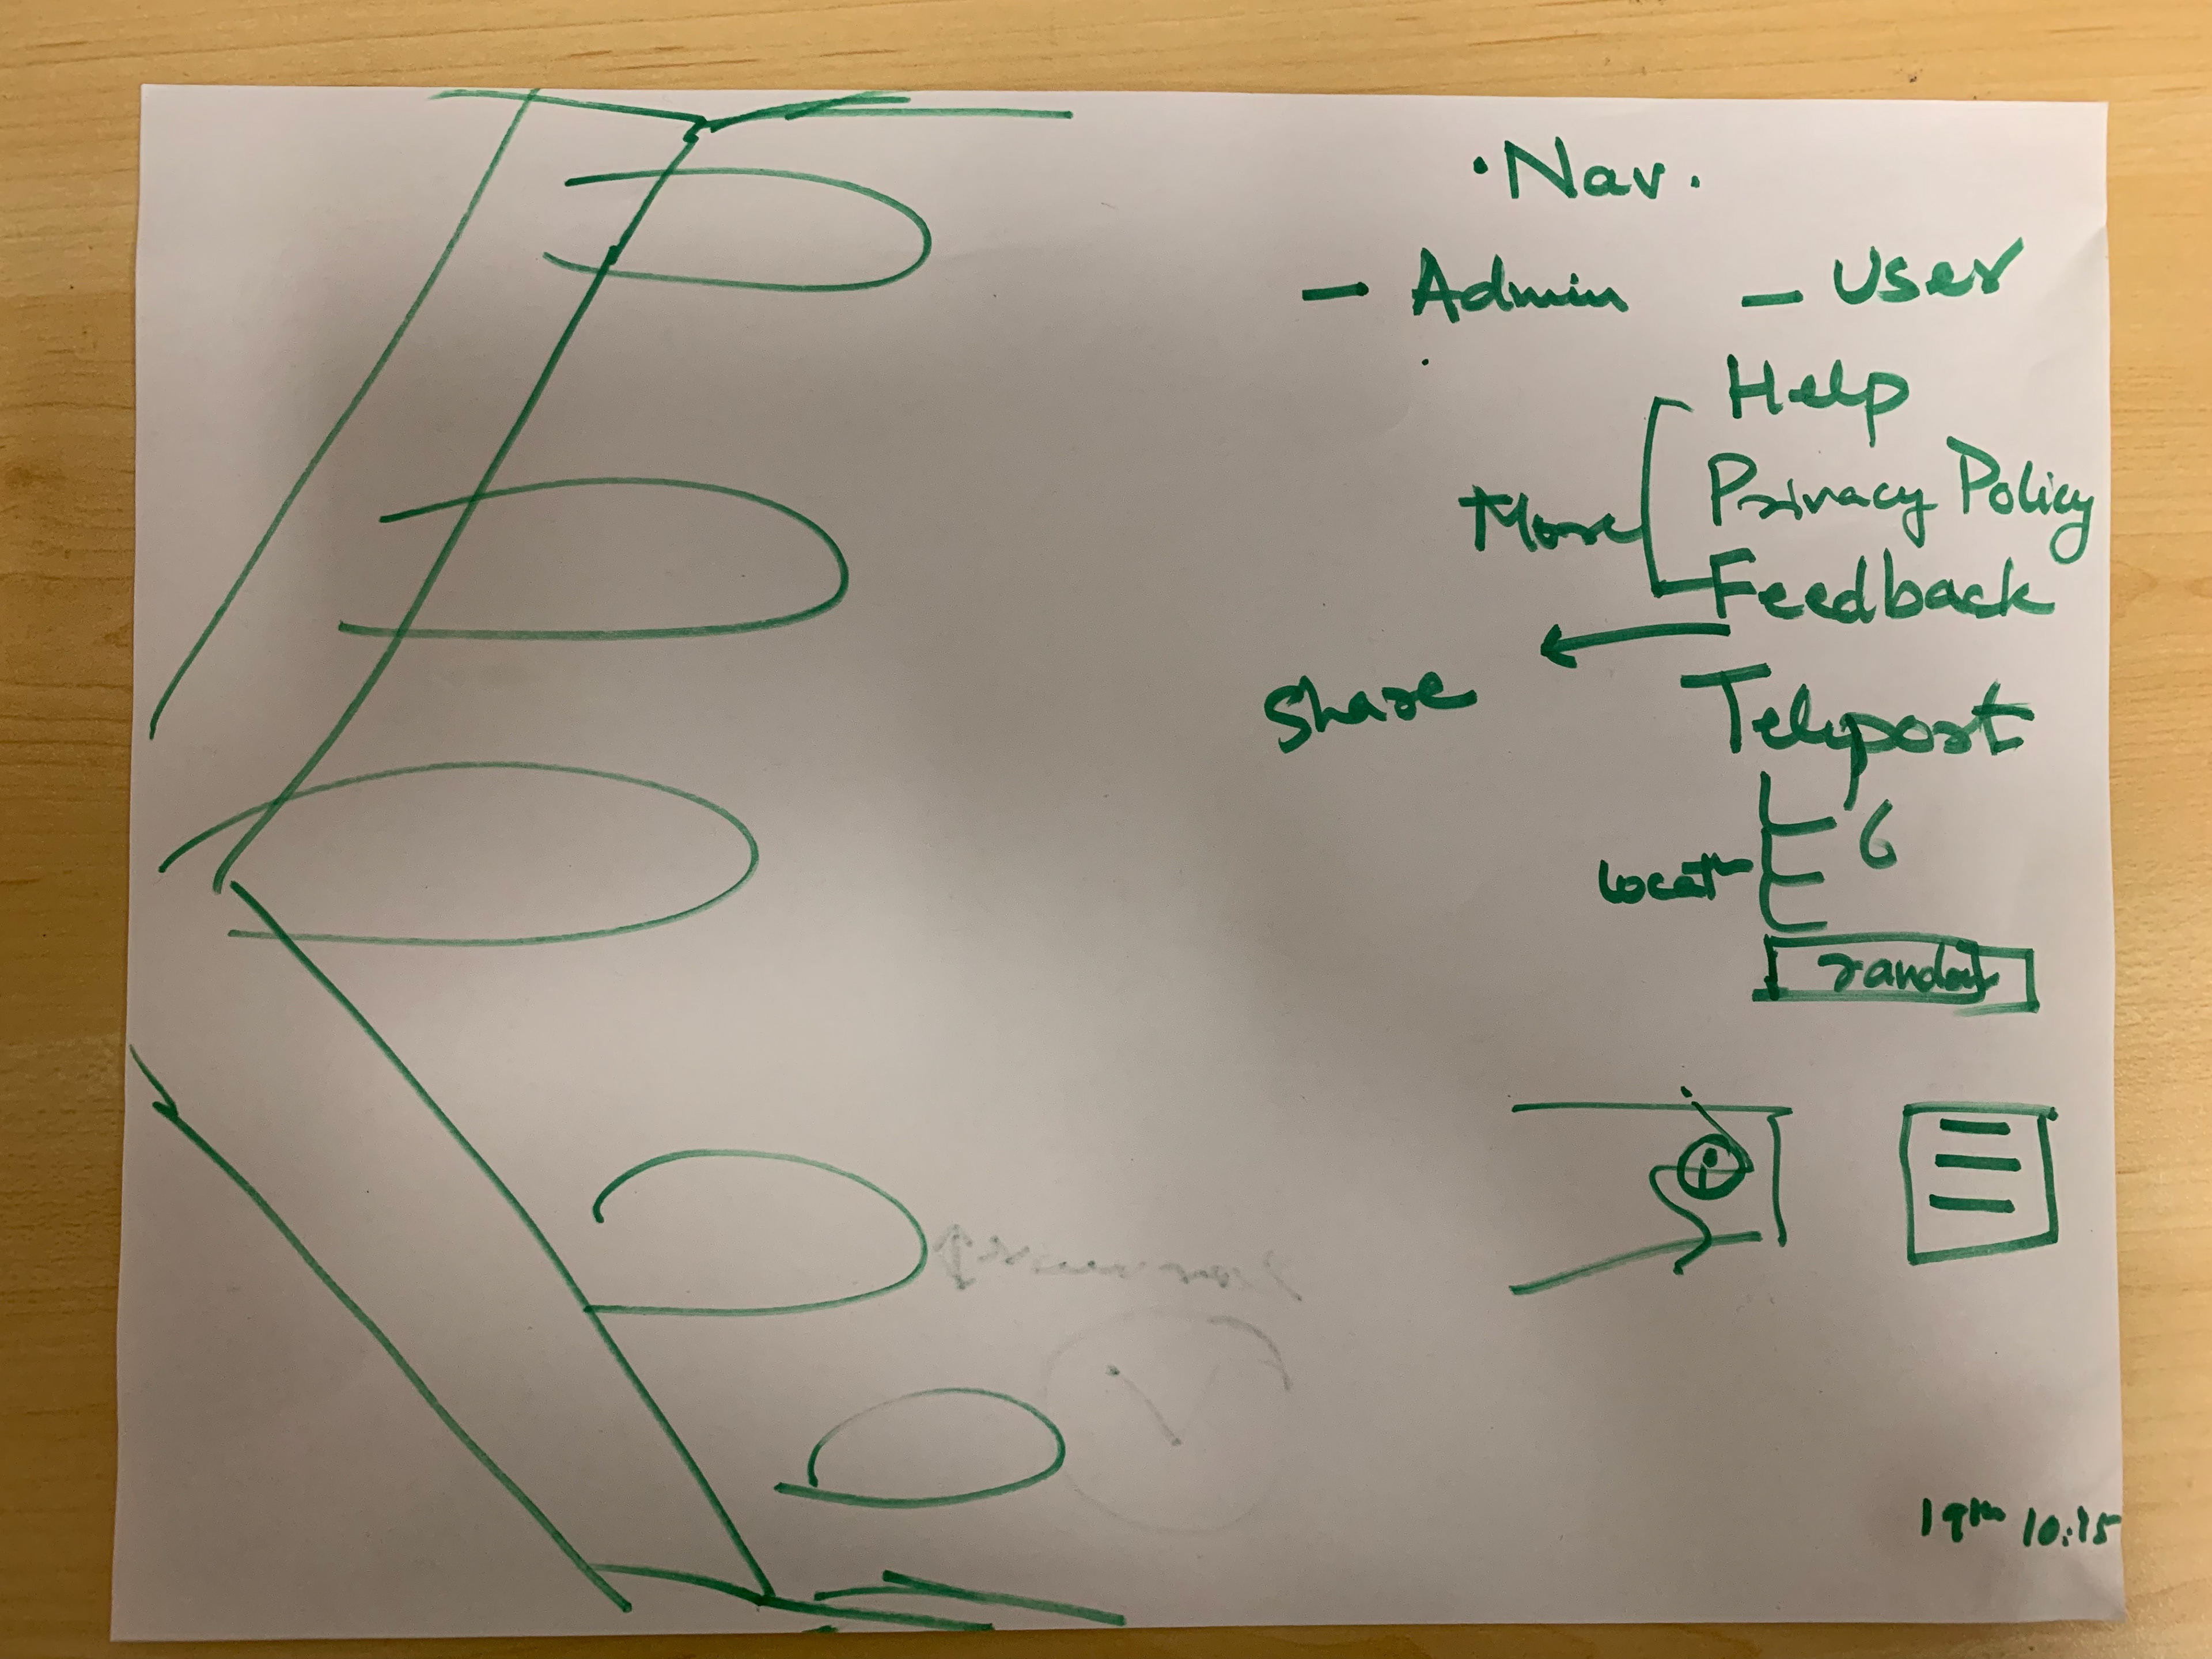 • Nav.
– Admin – User
Help
Privacy Policy
More
Feedback
Share
Teleport
6
random
19th 10:15